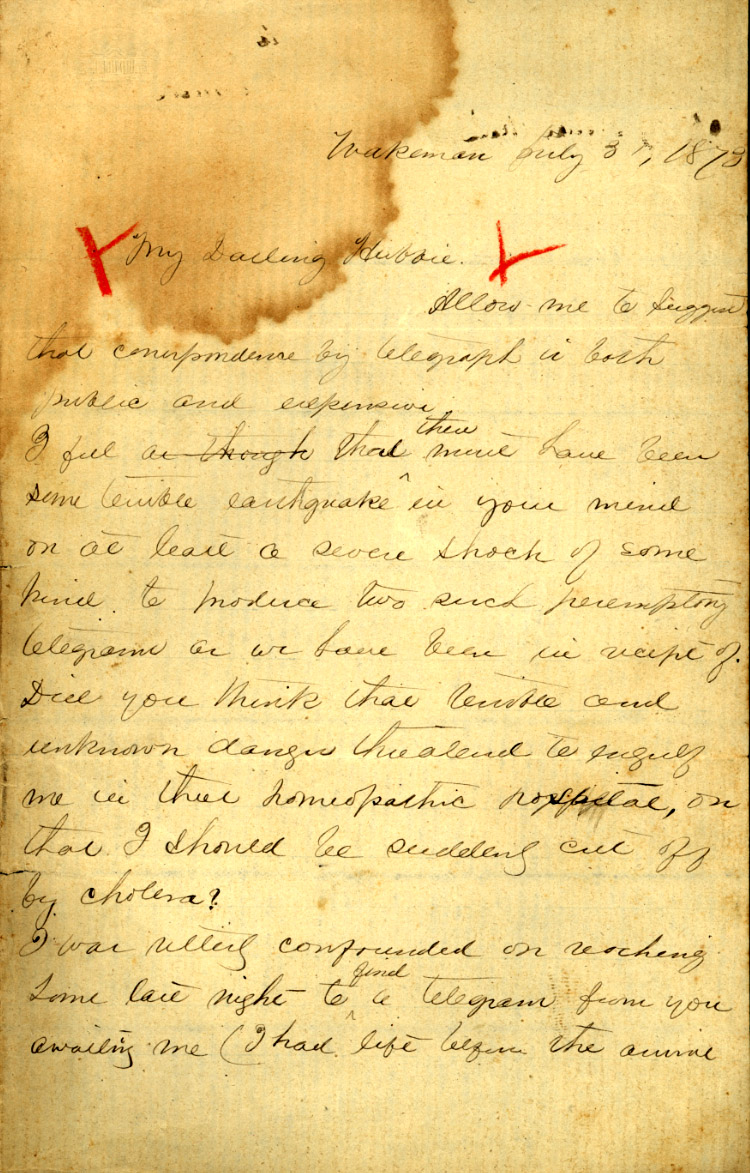 Wakeman July 3rd, 1873
My Darling Hubbie.
Allow me to suggest
that correspondence by telegraph is both
public and expensive
I feel as though that there must have been
some terrible earthquake in your mind
or at least a severe shock of some
kind to produce two such peremptory
telegrams as we have been in reciept of.
Did you think that terrible and
unknown danger threatend to engulf
me in that homeopathic hospital, or
that I should be suddenly cut off
by cholera?
I was utterly confounded on reaching
home last night to find a telegram from you
awaiting me (I had left before the arrival